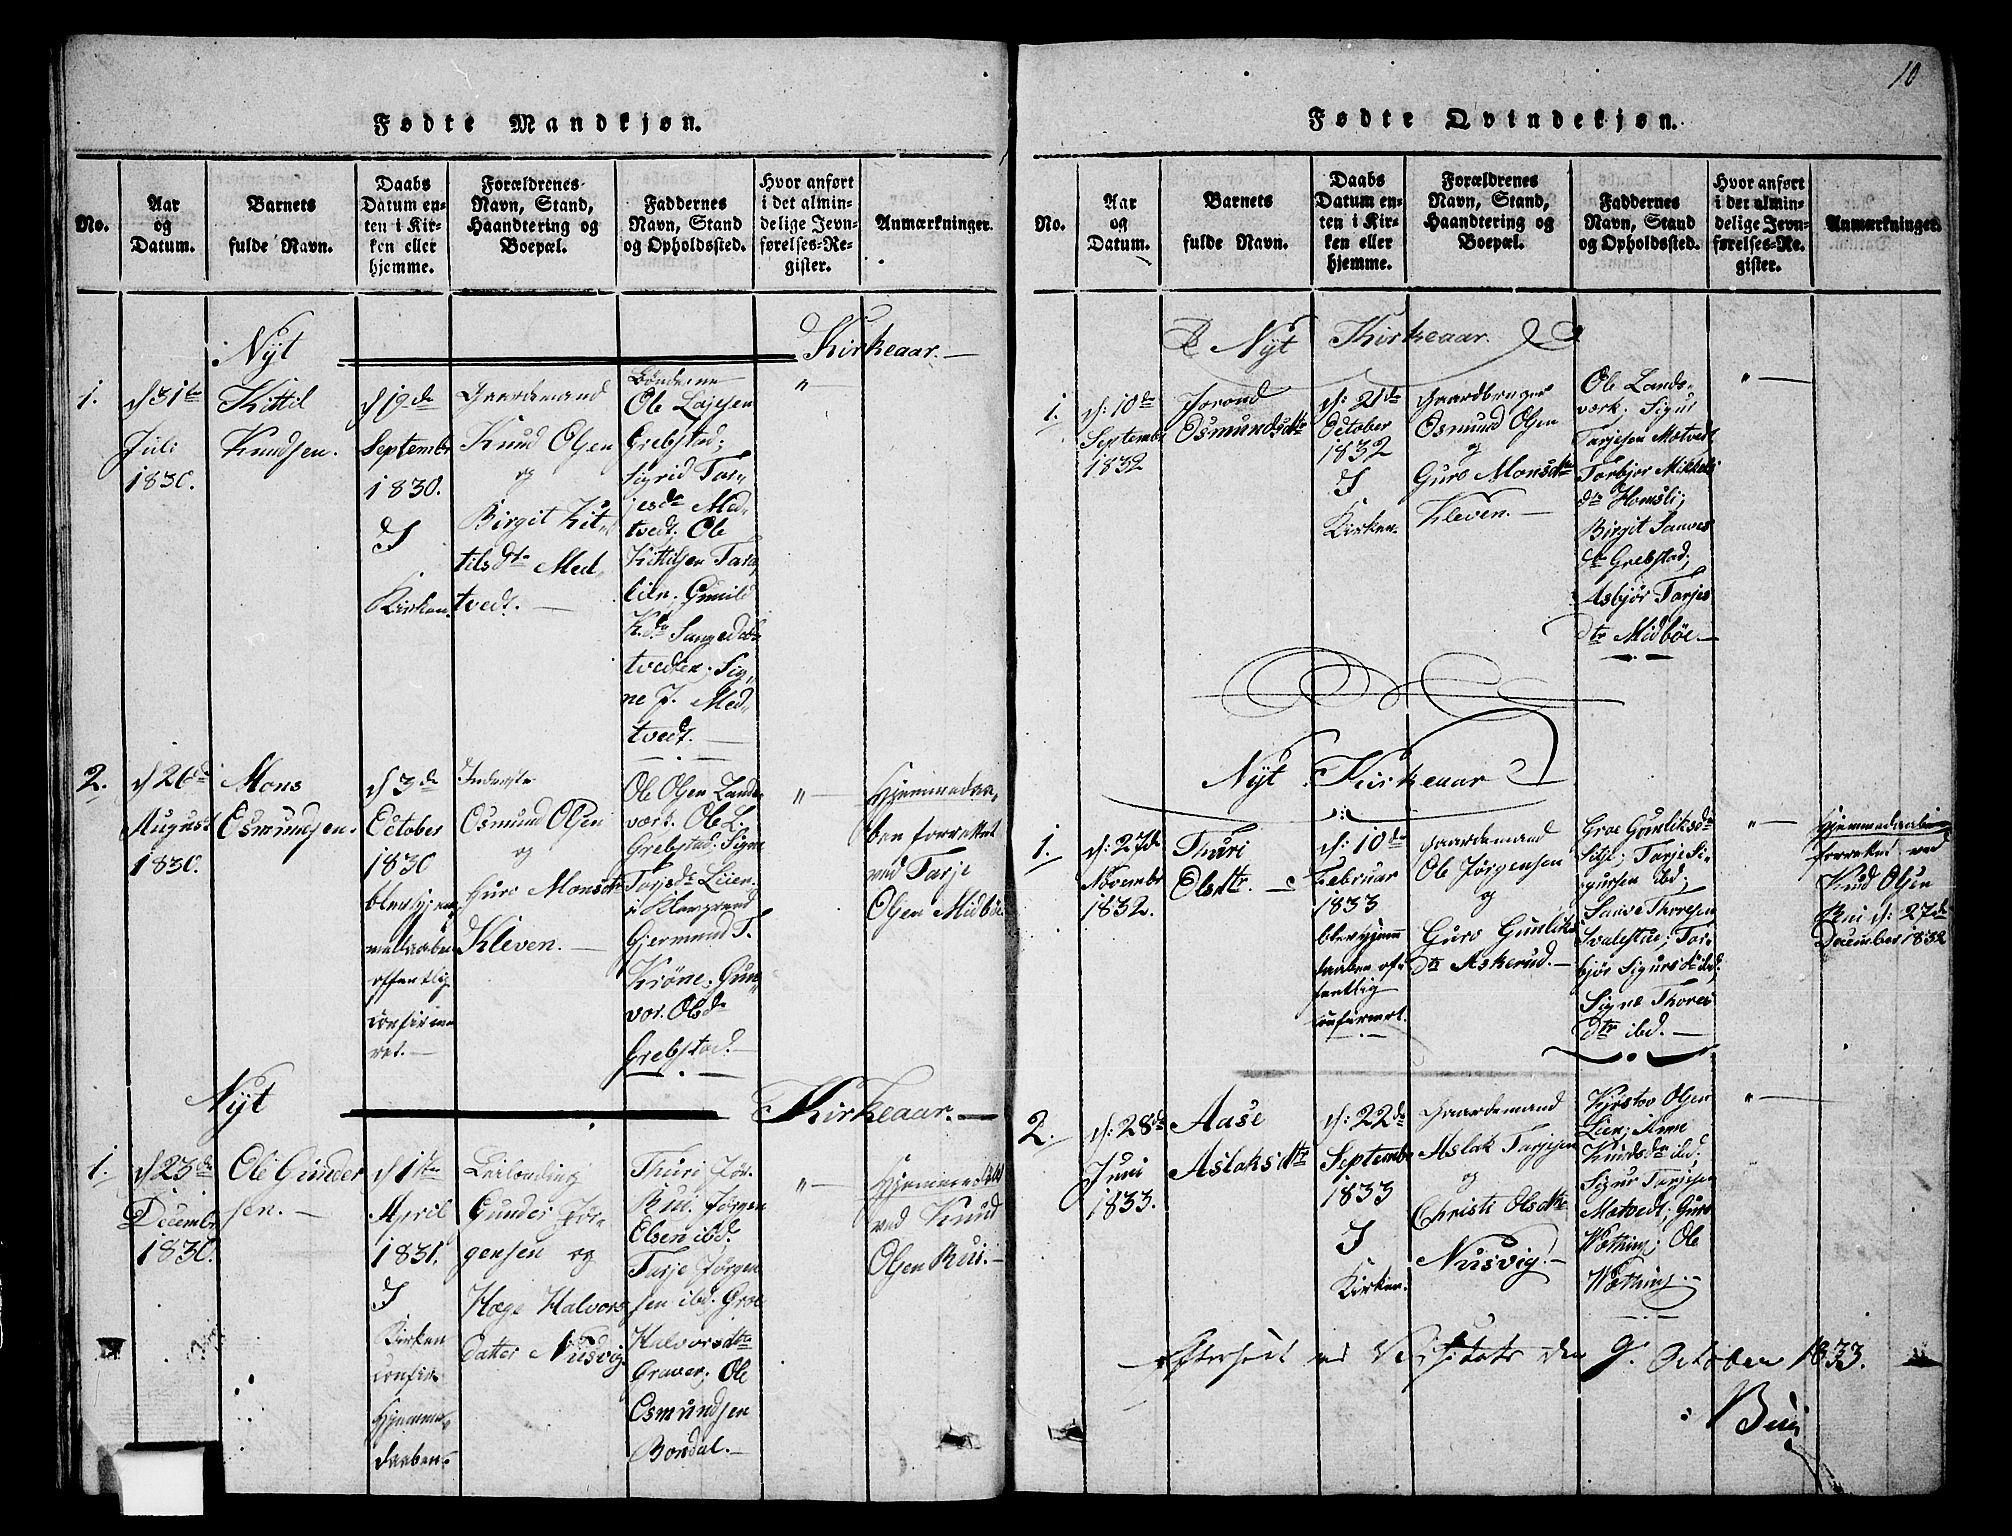 10
Fødte Mandkjøn.
No.
Aar
og
Datum.
Barnets
fulde Navn.
Daabs
Datum en-
ten i Kir-
ken eller
hjemme.
Forældrenes
Navn, Stand,
Haandtering og
Boepæl.
Faddernes
Navn, Stand
og Opholdssted.
Hvor anført
i det almin-
delige Jevn-
førelses-Re-
gister.
Anmærkninger.
Nyt Kirkeaar.
1.
d 31te
Juli
1830.
Kittil
Knudsen.
d 19de
Septembr
1830.
I
Kirken
Gaardemand
Knud Olsen
og
Birgit Kit-
tilsdtr Med-
tvedt.
Bönderne
Ole
Grebstad;
Sigrid Tar-
jesdr Med-
tvedt. Ole
Kittilsen Tara-
lien. Gunild
tvedten; Sig-
ne J. Med-
tvedt.
2.
d 26de
August
1830.
Mons
Osmundsen.
d 3de
October
1830
blev hjem-
medaaben
offentlig
confirme-
ret.
Inderste
Osmund Olsen
og
Guro Monsdtr
Kleven.
Ole Olsen Lands-
værk. Ole L.
Grebstad; Signe
Tarjesdr Leien.
Gjermund T.
Kröne. Gun-
vor. Olsdr
Grebstad.
"
Hjemmedaa-
ben forrettet
ved Tarje
Olsen Midböe.
Nyt Kirkeaar.
1.
d 23de
Decembr
1830.
Ole Gunder-
sen.
d 1ste
April
1831.
I
Kirken
confir.
Hjemme-
daaben.
Leilænding
Gunder Jör-
gensen og
Hæge Halvors-
datter Nusvig.
Thuri Jör.
Rui. Jörgen
Olsen ibd.
Tarje Jörgen-
sen ibd. Groe
Halvorsdtr
Graver; Ole
Osmundsen
Bondal.
"
ved Knud
Olsen Rui.
Fødte Qvindekjøn.
No.
Aar
og
Datum.
Barnets
fulde Navn.
Daabs
Datum en-
ten i Kir-
ken eller
hjemme.
Forældrenes
Navn, Stand,
Haandtering og
Boepæl.
Faddernes
Navn, Stand
og Opholdssted.
Hvor anført
i det almin-
delige Jevn-
førelses-Re-
gister.
Anmærkninger.
Nyt Kirkeaar.
1.
d: 10de
Septembr
1832
Jorond
Osmundsdtr
d: 21de
October
1832
I
Kirken
Gaardbruger
Osmund Olsen
og
Guro Monsdtr
Kleven.
Ole Lands-
værk; Sigur
Tarjesen Motvedt
Torbjor Mikkels
dtr Homsli;
Birgit Sanves
dtr Grebstad;
Asbjör Tarjes
dtr Midböe.
Nyt Kirkeaar
1.
d: 27de
Novembr
1832.
Thuri
Olsdtr.
d: 10de
Februar
1833
blev Hjemm
daaben of-
fentlig
confirmert.
Gaardemand
Ole Jörgensen
og
Guro Gunliks
dtr Askerud.
Groe Gunliksdr
Sitje; Tarje Si-
gursen ibd;
Sanve Thoresen
Svalestue; Tor-
björ Sigursdr ibd;
Signe Thores
dtr ibd.
"
Hjemmedaaben
forrettet ved
Knud Olsen
Rui d: 27de
December 1832
2.
d: 28de
Juni
1833.
Aase
Aslaksdtr
d: 22de
Septembr
1833
I
Kirken.
Gaardemand
Aslak Tarjesen
og
Christi Olsdtr
Nusvig.
Kjistov Olsen
Lien; Anne
Knudsdr ibd;
Sigur Tarjesen
Motvedt; Guro
Ole
"
Efterseet ved Visitats den 9. October 1833.